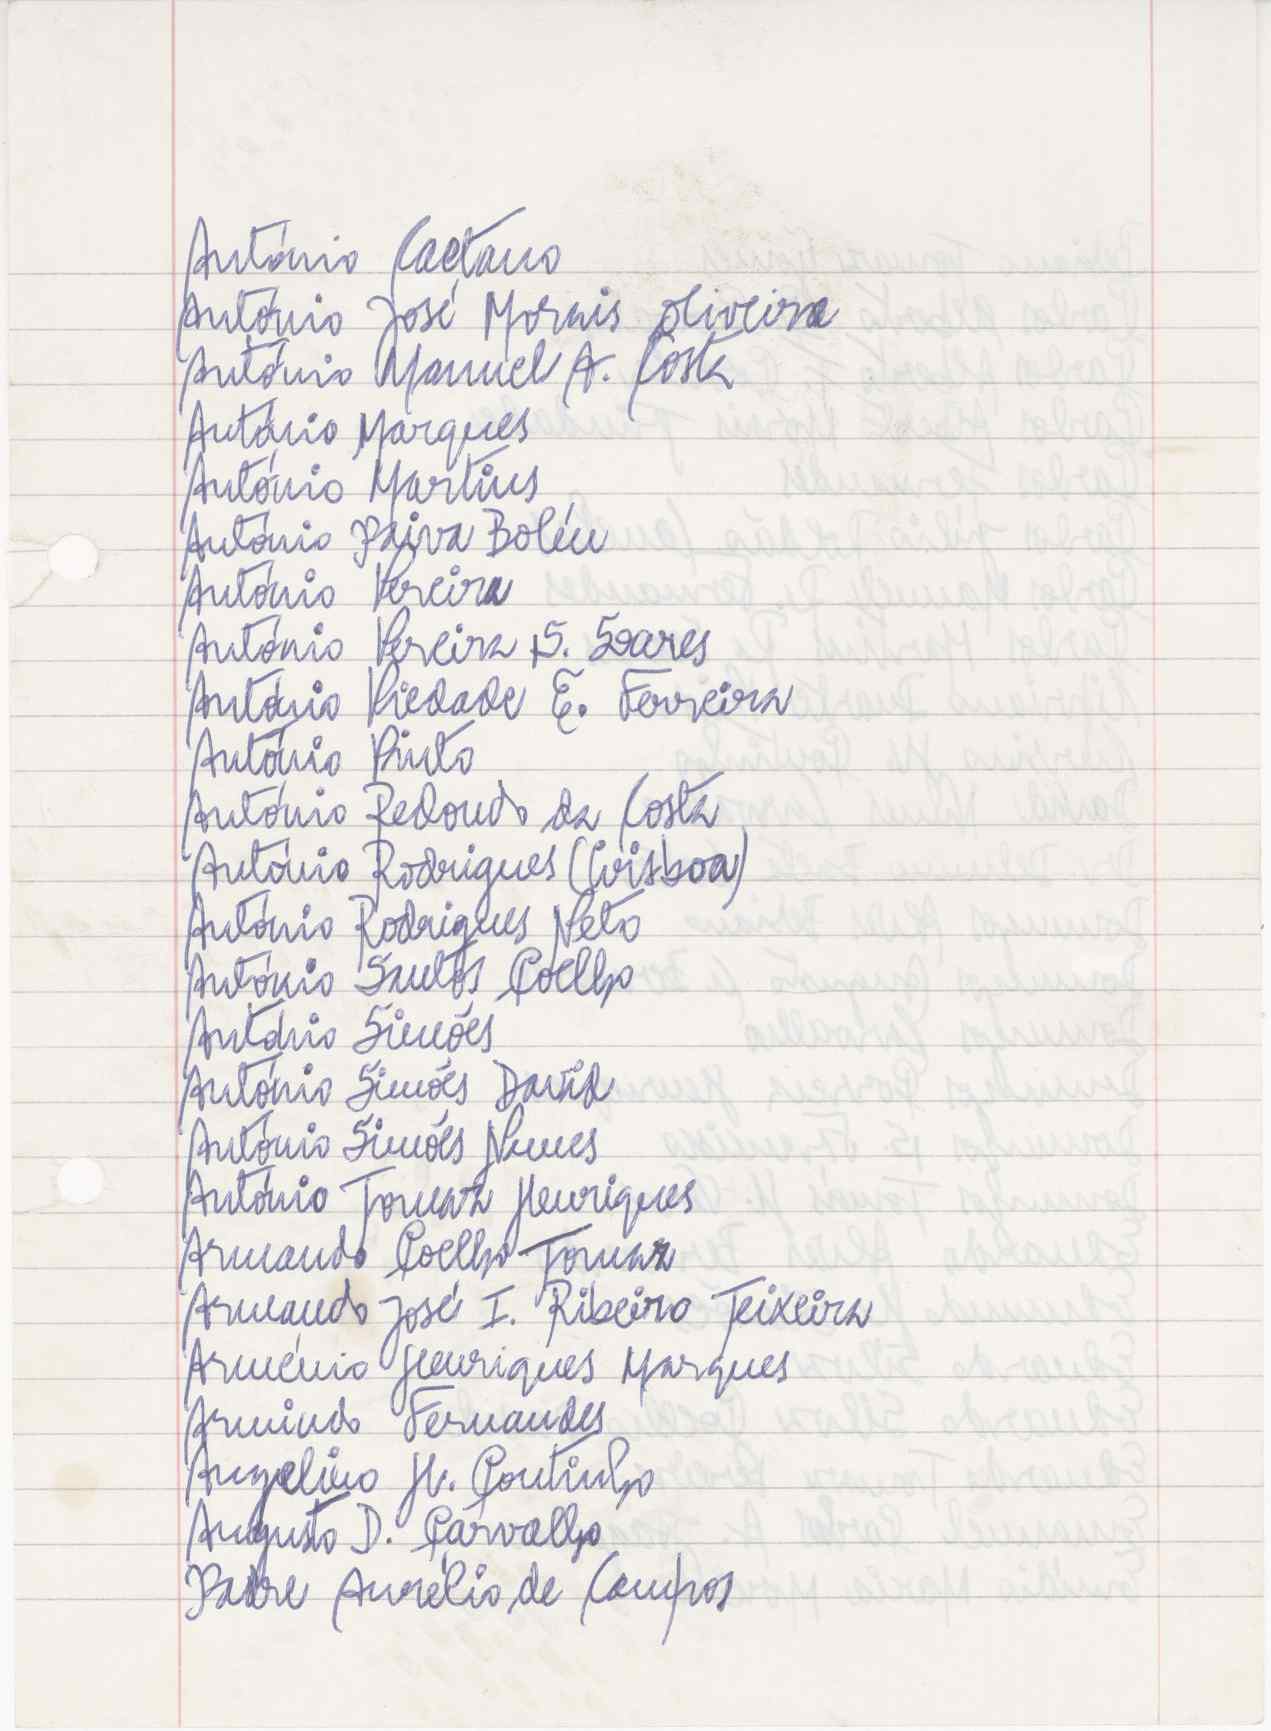 António Caetano
António José Morais Oliveira
António Manuel A. Costa
António Marques
António Martins
António Paiva Boléu
António Pereira
António Pereira S. Soares
António Piedade E. Ferreira
António Pinto
António Redondo da Costa
António Rodrigues (Lisboa)
António Rodrigues Neto
António Santos Coelho
António Simões
António Simões David
António Simões Nunes
António Tomaz Henriques
Armando Coelho Tomaz
Armando José I. Ribeiro Teixeira
Arménio Henriques Marques
Armindo Fernandes
Angelino H. Coutinho
Augusto D. Carvalho
Padre Aurélio de Campos